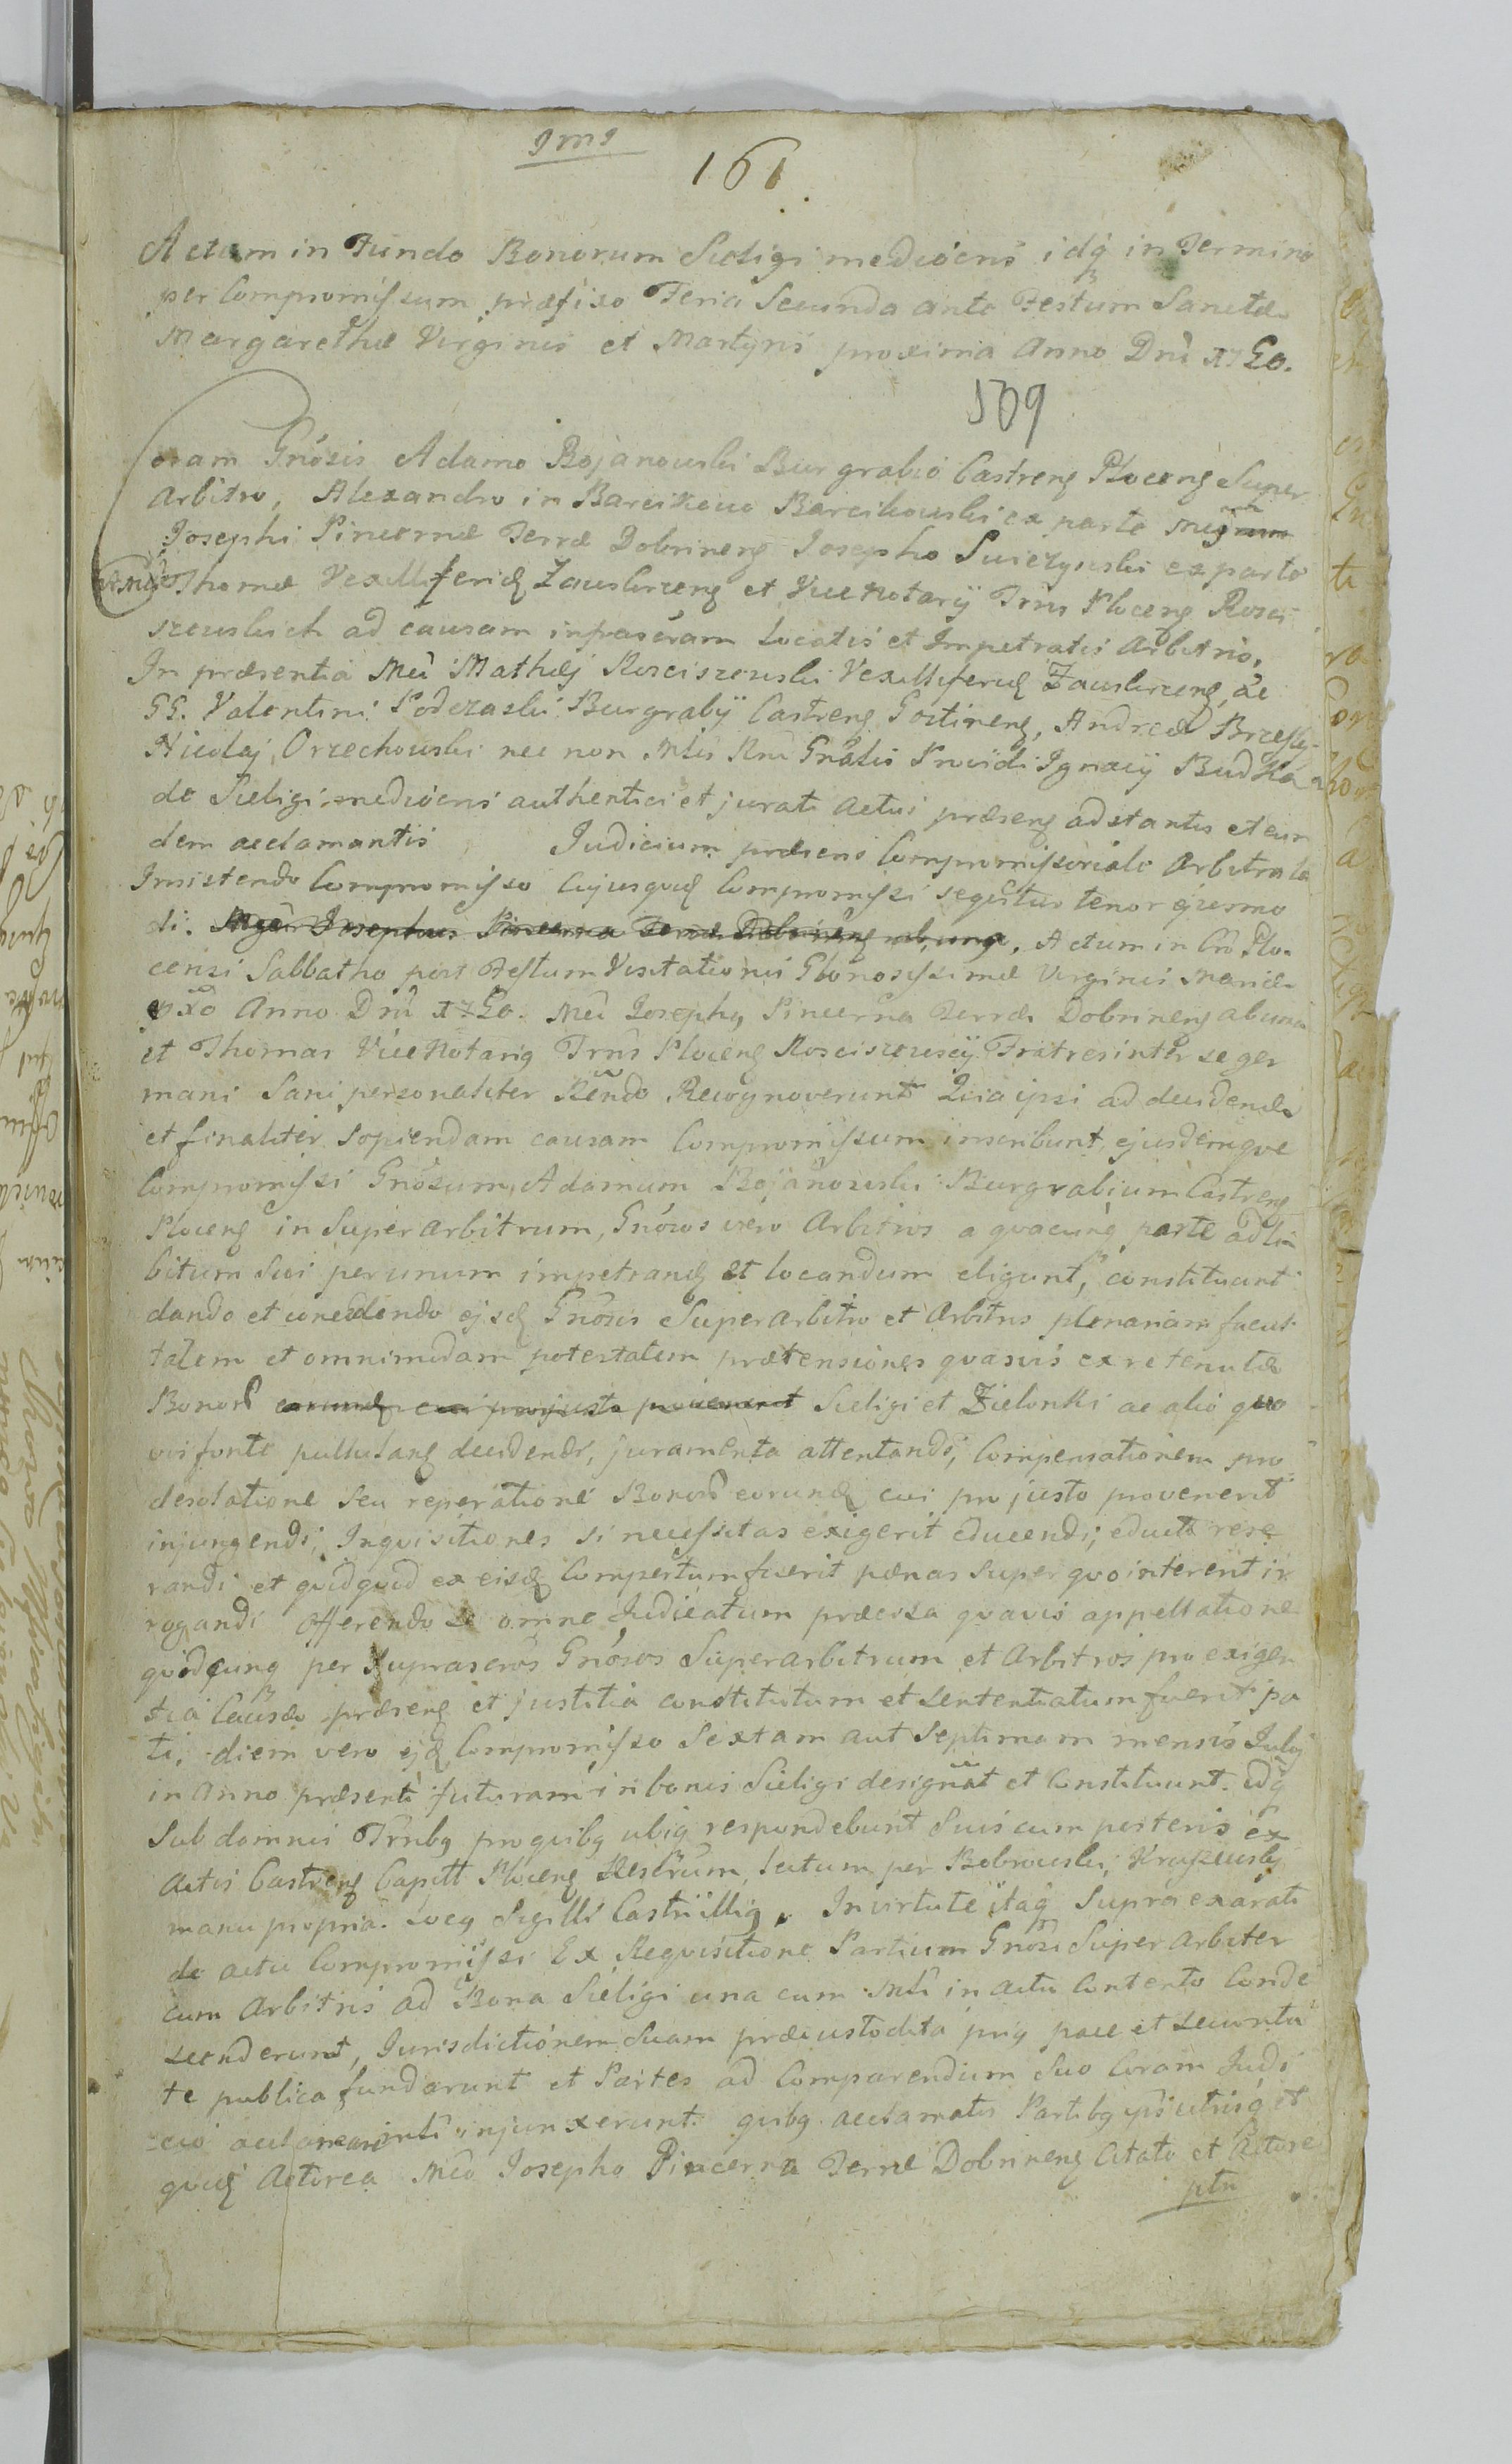 161
Actum in Fundo Bonorum Sieligi mediocris idq in Termino
per Compromissum præfixo Feria Secunda ante Festum Sanctæ
Margarethæ Virginis et Martyris proxima Anno Dni 1760.
509
Coram Gnosis Adamo Bojanowski Burgrabio Castren Plocen Super
Arbitro, Alexandro in Barcikowo Barcikowski ex parte
Josephi Pincernæ Terræ Dobrinen Josepho Swiezynski ex parte
Thomæ Vexilliferid Zawskrzen et Vice Notarij Trris Plocen Rosci
szewskich ad causam infrascram locatis et Impetratis Arbitris,
In præsentia Mci Mathæj Rosciszewski Vexilliferid Zawskrzen, ac
GG. Valentini Podczaski Burgrabij Castren Gostinen, Andreæ
Nicolaj Orzechowski nec non Mlis Rni Gnalis Providi Ignacij Budka
de Sieligi mediocris authentici et jurati actui præsen adstantis et eun
dem acclamantis Judicium præsens Compromissoriale Arbitrale
Insistendo Compromisso Cujusquid Compromissi seqitur tenor ejusmo
di. Josephus Pincerna Terræ Dobrinen ab una, Actum in Cro Plo-
censi Sabbatho post Festum Visitationis Gloriosissimæ Virginis Mariæ
pxo Anno Dni 1760. Mci Josephy Pincerna Terræ Dobrinen ab una
et Thomas Vice Notarig Trris Plocen Rosciszewscij Fratres inter se ger
mani Sani personaliter Rendo Recognoverunt Quia ipsi ad decidendā
et finaliter sopiendam causam Compromissum inscribunt, ejusdemqve
Compromissi Gnosum Adamum Bojanowski Burgrabium Castren
Plocen in Superarbitrum, Gnosos vero Arbitros a qvacunq parte ad li
bitum sui per unum impetrand et locandum eligunt, constituunt
dando et concedendo ejsd Gnosis Superarbitro et Arbitris plenariam facul
tatem et omnimodam potestatem prætensiones qvasvis ex retentæ
Bonor cui pro justo provenerit Sieligi et Zielonki ac alio quo
vis fonte pullulan decidendi, juramenta attentandi, Compensationem pro
desolatione seu reperatione Bonor eorund cui pro justo provenerit
injungendi, Inqvisitiones si necessitas exigerit educendi, educta rese
randi et qvidqvid ex eisd Compertum fuerit pænas super qvo interent ir
rogandi Offerendo se omne Judicatum præcisa qvavis appellatione
qvodcunq per suprascros Gnosos Superarbitrum et Arbitros pro exigen
tia Causæ præsen et justitia constitutum et sententiatum fuerit pa
ti, diem vero ejd Compromisso Sextam aut Septimam mensis Julij
in Anno præsenti futuram in bonis Sieligi designat et Constituunt. idq
Sub damnis Trribg pro qvibg ubiq respondebunt Suis cum posteris ex
Actis Castren Capitt Plocen lectum per Bobrowski,
manu propria. Locg Sigilli Castri illig. In virtute itaq Supra exarati
de actu Compromissi Ex Reqvisitione Partium Gnosi Superarbiter
cum Arbitris ad Bona Sieligi una cum Mli in actu Contento Conde
scenderunt, Jurisdictionem Suam præcustodita prig pace et securita
te publica fundarunt et Partes ad Comparendum Suo Coram Judi
cio injunxerunt. qvibg acclamatis Partibg et
qvid Actorea Mco Josepho Pincerna Terræ Dobrinen Citato et Actore
ptu